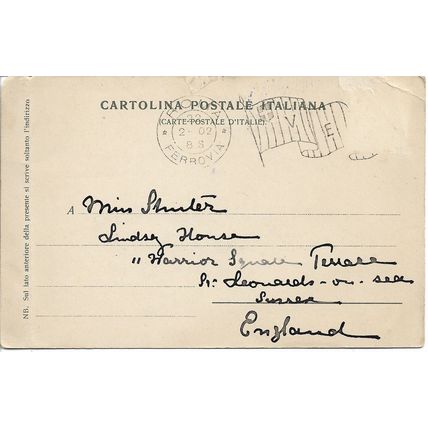 CARTOLINA POSTALE ITALIANA
(CARTE POSTALE D'ITALIE)
ROMA
22
2 - 02
8 S
* FERROVIA *
V E
A Miss Shuter
Lindsey House
11 Warrior Square Terrace
St. Leonards-on-sea
Sussex
England
NB. Sul lato anteriore della presente si scrive soltanto l'indirizzo.